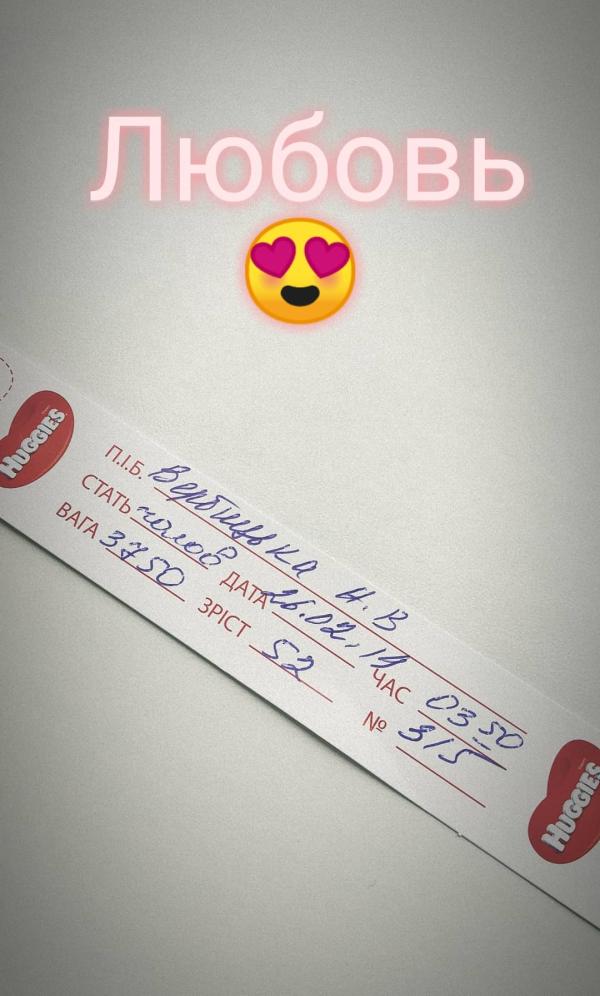 Любовь
HUGGIES
П.І.Б. Вербицька Н.В
СТАТЬ чолов ДАТА 26.02.19 ЧАС 03 50
ВАГА 3750 ЗРІСТ 52 № 315
HUGGIES